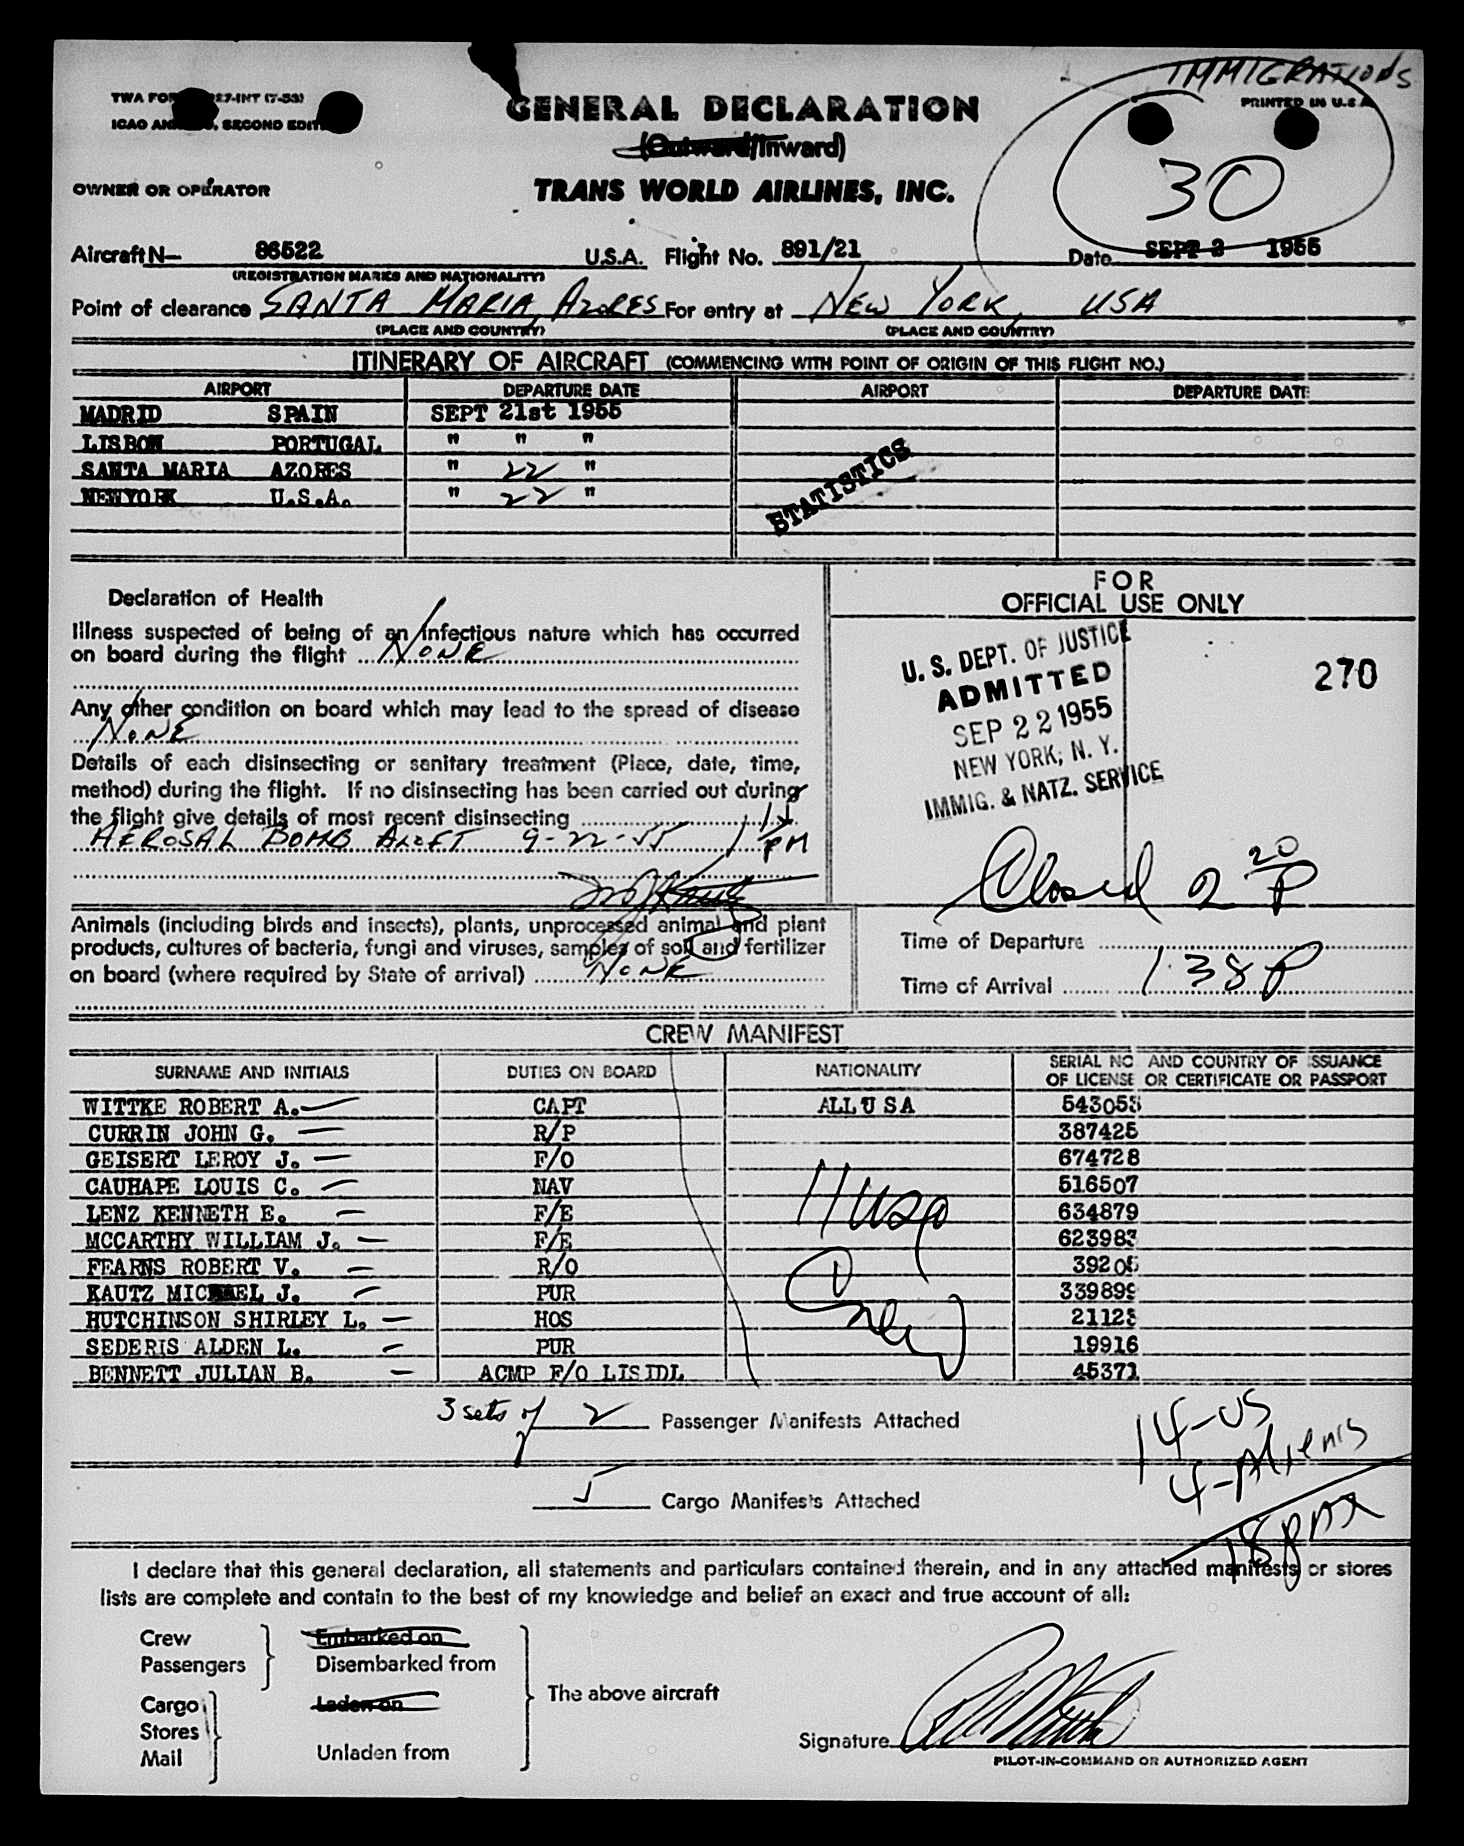 IMMIGRATIONS
TWA FOR 27-INT (7-53)
PRINTED IN U.S.A.
ICAO SECOND EDIT
GENERAL DECLARATION
(Outward/Inward)
30
OWNER OR OPERATOR TRANS WORLD AIRLINES, INC.
Aircraft N— 86522 U.S.A. Flight No. 891/21 Date SEPT 1955
(REGISTRATION MARKS AND NATIONALITY)
Point of clearance SANTA MARIA, AZORES For entry at NEW YORK, USA
(PLACE AND COUNTRY) (PLACE AND COUNTRY)
ITINERARY OF AIRCRAFT (COMMENCING WITH POINT OF ORIGIN OF THIS FLIGHT NO.)
AIRPORT DEPARTURE DATE AIRPORT DEPARTURE DATE
MADRID SPAIN SEPT 21st 1955
LISBON PORTUGAL " " "
SANTA MARIA AZORES " 22 "
NEWYORK U.S.A. " 22 "
STATISTICS
Declaration of Health
Illness suspected of being of an infectious nature which has occurred
on board during the flight NONE
Any other condition on board which may lead to the spread of disease
NONE
Details of each disinsecting or sanitary treatment (Place, date, time,
method) during the flight. If no disinsecting has been carried out during
the flight give details of most recent disinsecting
AEROSAL BOMB ALOFT 9-22-55 PM
FOR
OFFICIAL USE ONLY
U. S. DEPT. OF JUSTICE
ADMITTED
SEP 22 1955
NEW YORK, N. Y.
IMMIG. & NATZ. SERVICE
270
Closed 2 20 P
Animals (including birds and insects), plants, unprocessed animal and plant
products, cultures of bacteria, fungi and viruses, samples of soil and fertilizer
on board (where required by State of arrival) NONE
Time of Departure
Time of Arrival 1:38 P
CREW MANIFEST
SURNAME AND INITIALS DUTIES ON BOARD NATIONALITY SERIAL NO AND COUNTRY OF ISSUANCE
OF LICENSE OR CERTIFICATE OR PASSPORT
WITTKE ROBERT A. CAPT ALL U S A 543053
CURRIN JOHN G. R/P 387425
GEISERT LEROY J. F/O 674728
CAUHAPE LOUIS C. NAV 516507
LENZ KENNETH E. F/E 634879
MCCARTHY WILLIAM J. F/E 623983
FEARNS ROBERT V. R/O 39205
KAUTZ MICHAEL J. PUR 339899
HUTCHINSON SHIRLEY L. HOS 21128
SEDERIS ALDEN L. PUR 19916
BENNETT JULIAN B. ACMP F/O LIS IDL 45371
11 USA
Crew
3 sets of 2 Passenger Manifests Attached
14-US
4-Aliens
18 pax
Cargo Manifests Attached
I declare that this general declaration, all statements and particulars contained therein, and in any attached manifests or stores
lists are complete and contain to the best of my knowledge and belief an exact and true account of all:
Crew Embarked on
Passengers Disembarked from
Cargo Laden on The above aircraft
Stores
Mail Unladen from
Signature
PILOT-IN-COMMAND OR AUTHORIZED AGENT